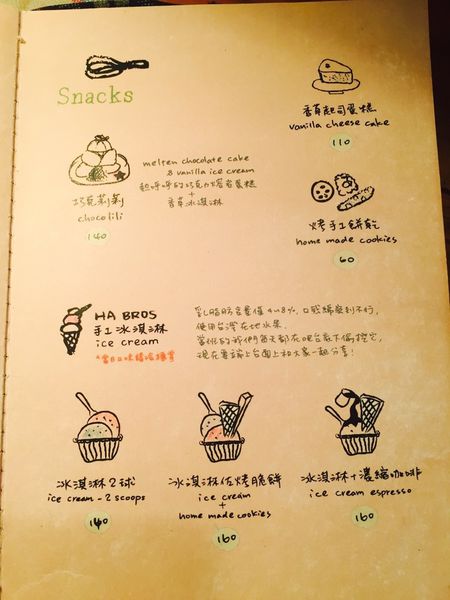 Snacks
香草起司蛋糕
vanilla cheese cake
110
melten chocolate cake
& vanilla ice cream
熱呼呼的巧克力熔岩蛋糕
+
香草冰淇淋
巧克莉莉
chocolili
140
烤手工餅乾
home made cookies
60
HA BROS
手工冰淇淋
ice cream
*當日口味請洽櫃臺
乳脂肪含量僅4~8%,口感綿密利不行,
使用台灣在地水果.
現在要端上台面上和大家一起分享!
冰淇淋2球
ice cream - 2 scoops
140
冰淇淋佐烤脆餅
ice cream
+
home made cookies
160
冰淇淋+濃縮咖啡
ice cream espresso
160